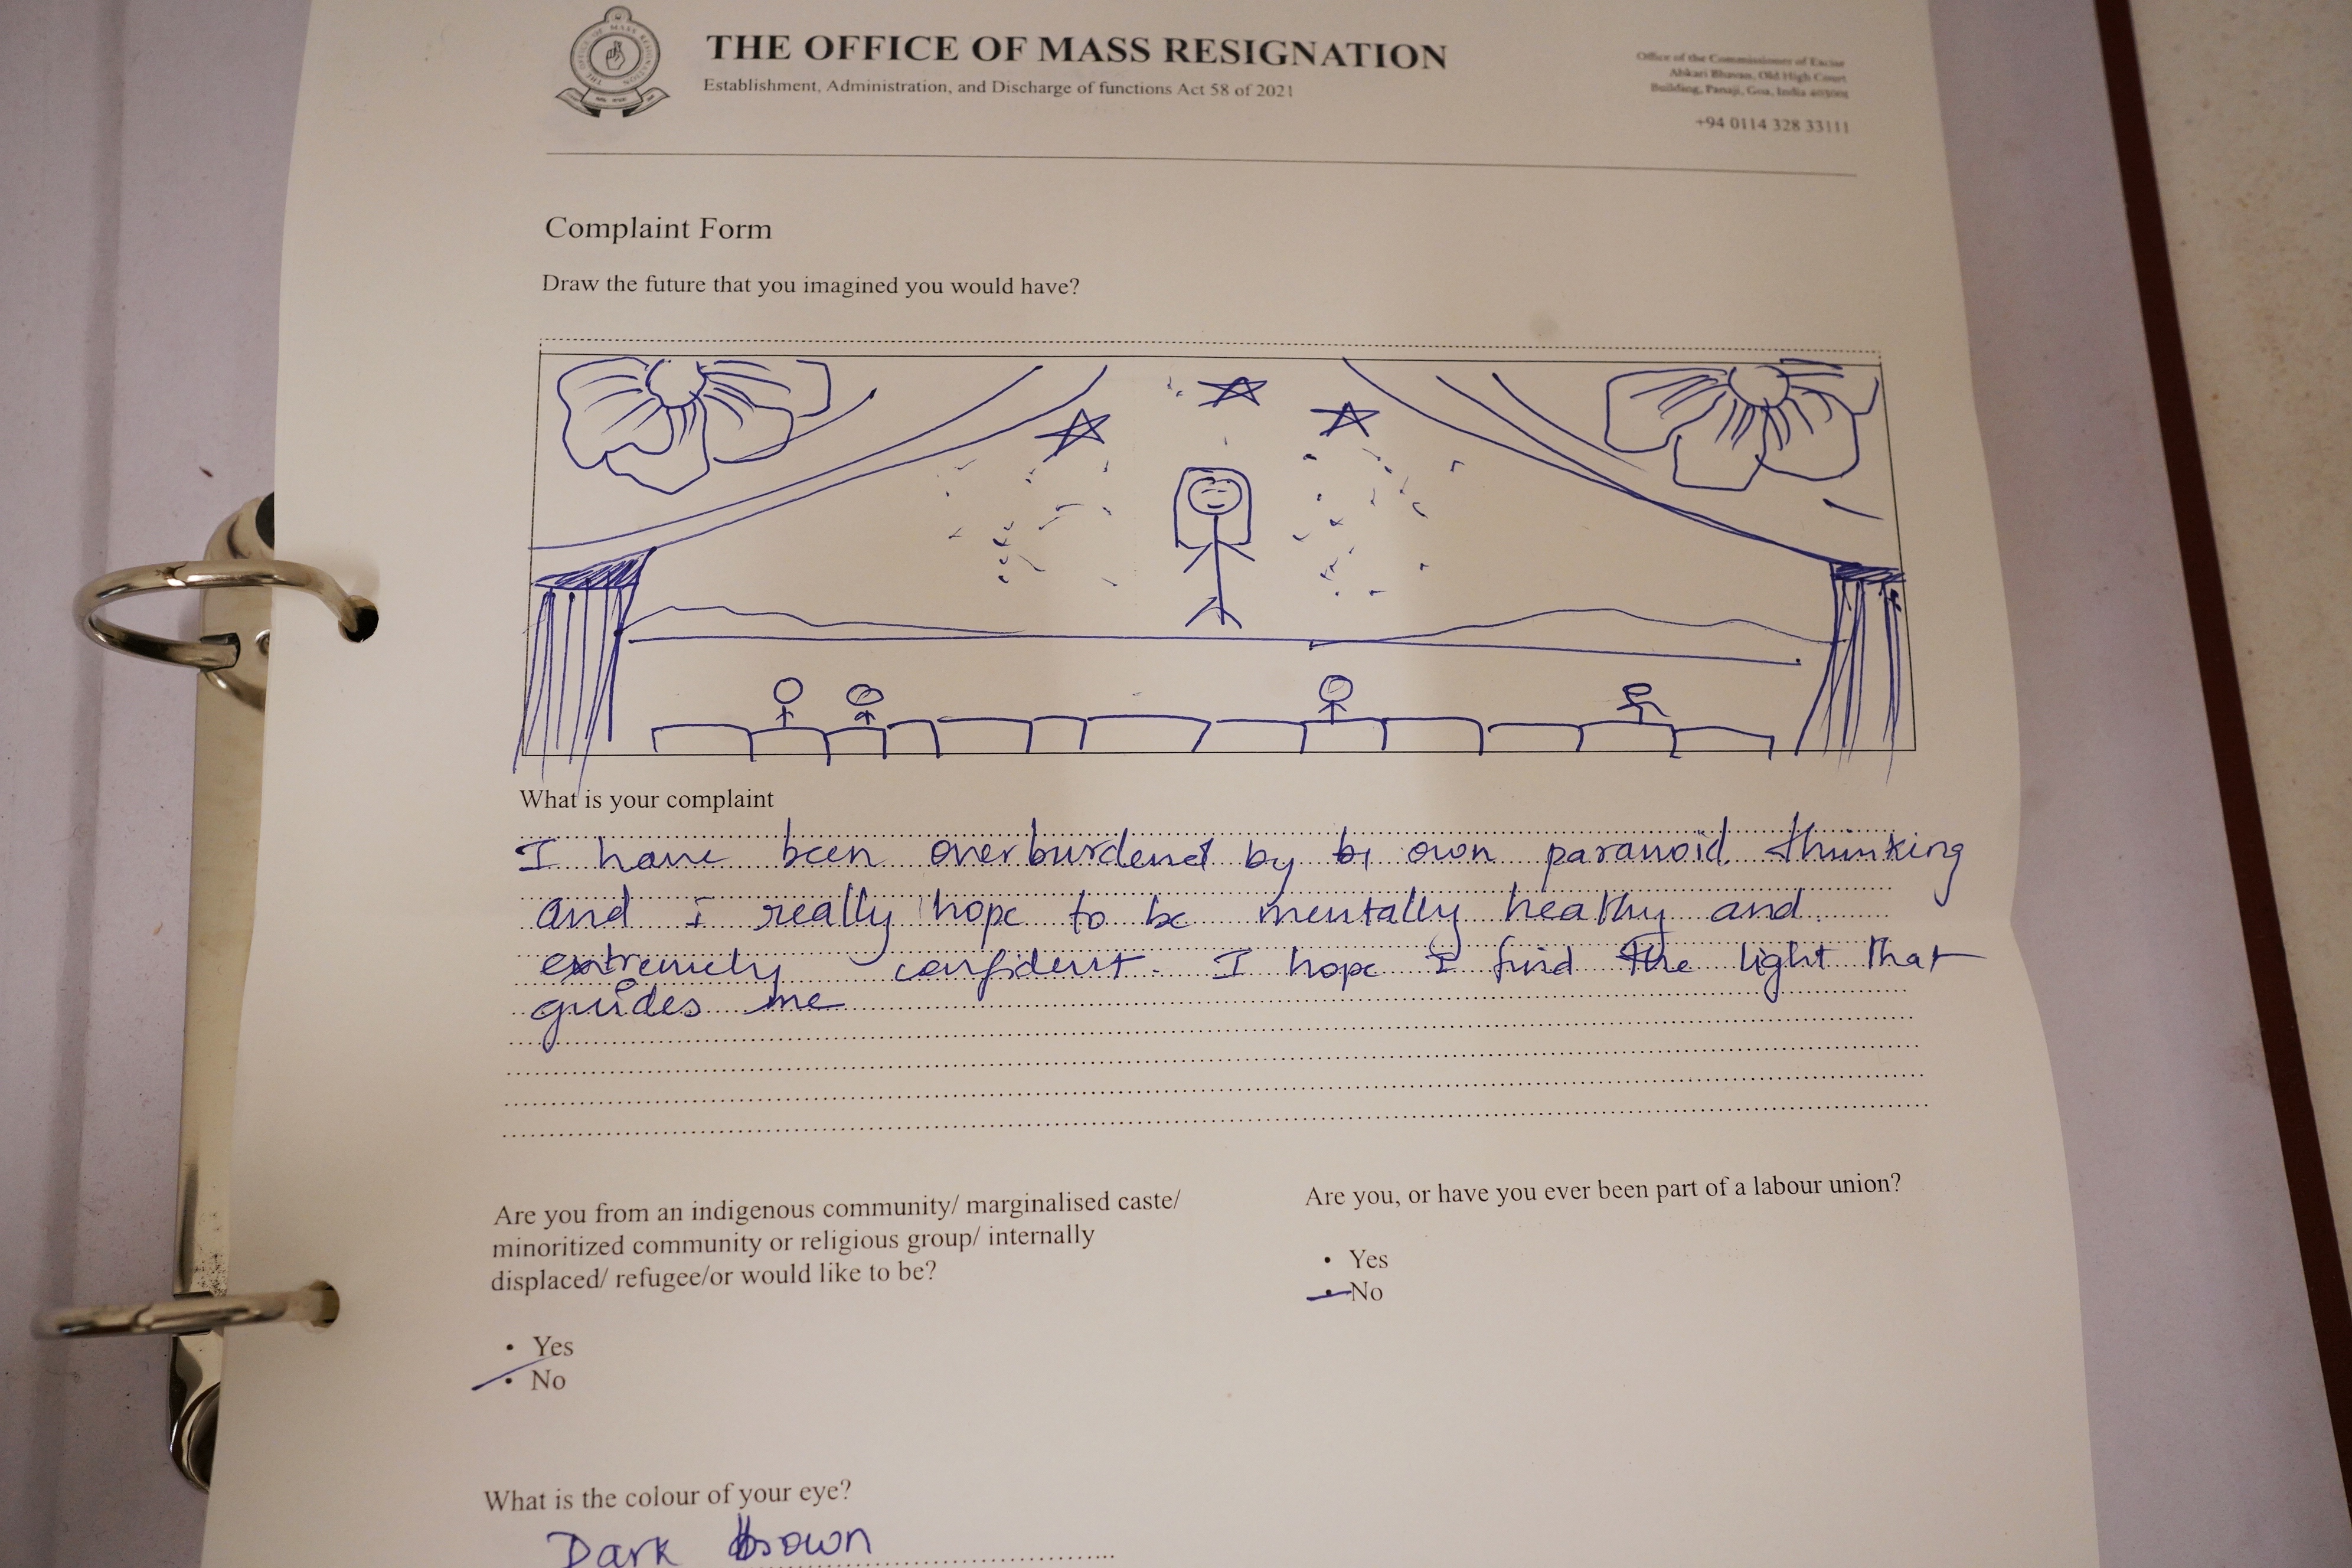 THE OFFICE OF MASS RESIGNATION
Establishment, Administration, and Discharge of functions Act 58 of 2021
Office of the Commissioner of Excise
Abkari Bhavan, Old High Court
Building, Panaji, Goa, India 403001
+94 0114 328 33111
Complaint Form
Draw the future that you imagined you would have?
What is your complaint
I have been overburdened by own paranoid thinking
and i really hope to be mentally heathy and
extremely confident. I hope I find the light that
guides me
Are you from an indigenous community/ marginalised caste/
minoritized community or religious group/ internally
displaced/ refugee/or would like to be?
• Yes
• No
Are you, or have you ever been part of a labour union?
• Yes
• No
What is the colour of your eye?
Dark brown